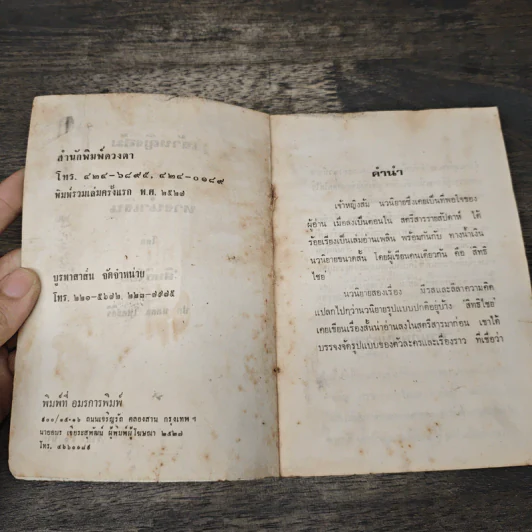 สำนักพิมพ์ดวงตา
โทร. ๔๒๔-๖๘๙๕, ๔๒๔-๐๑๘๙
พิมพ์รวมเล่มครั้งแรก พ.ศ. ๒๕๒๗
บูรพาสาส์น จัดจำหน่าย
โทร. ๒๒๐-๕๖๗๒,
พิมพ์ที่ อมรการพิมพ์
๕๐๐/๑๕-๑๖ ถนนเจริญรัถ คลองสาน กรุงเทพ ฯ
ผู้พิมพ์ผู้โฆษณา ๒๕๒๗
โทร.
คำนำ
เจ้าหญิงส้ม นวนิยายซึ่งเคยเป็นที่พอใจของ
ผู้อ่าน เมื่อลงเป็นตอนใน สตรีสารรายสัปดาห์ ได้
ร้อยเรียงเป็นเล่มอ่านเพลิน พร้อมกันกับ ทางน้ำเงิน
นวนิยายขนาดสั้น โดยผู้เขียนคนเดียวกัน คือ สิทธิ
ไชย์
นวนิยายสองเรื่อง มีรสและลีลาความคิด
แปลกไปกว่านวนิยายรูปแบบปกติอยู่บ้าง สิทธิไชย์
เคยเขียนเรื่องสั้นน่าอ่านลงในสตรีสารมาก่อน เขาได้
บรรจงจัดรูปแบบของตัวละครและเรื่องราว ที่เชื่อว่า